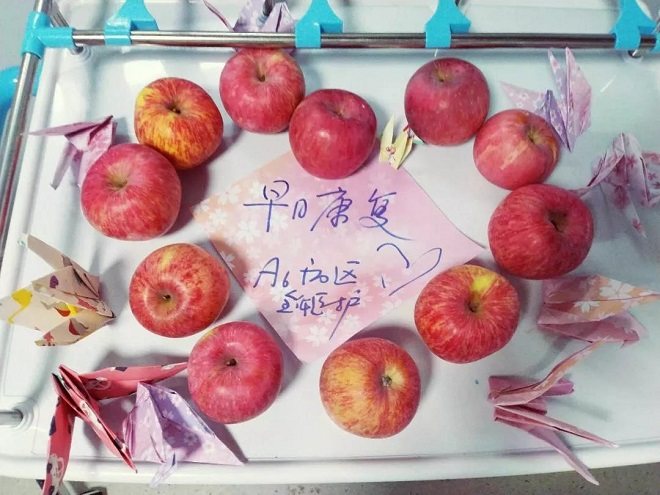 早日康复
A6病区
全体医护